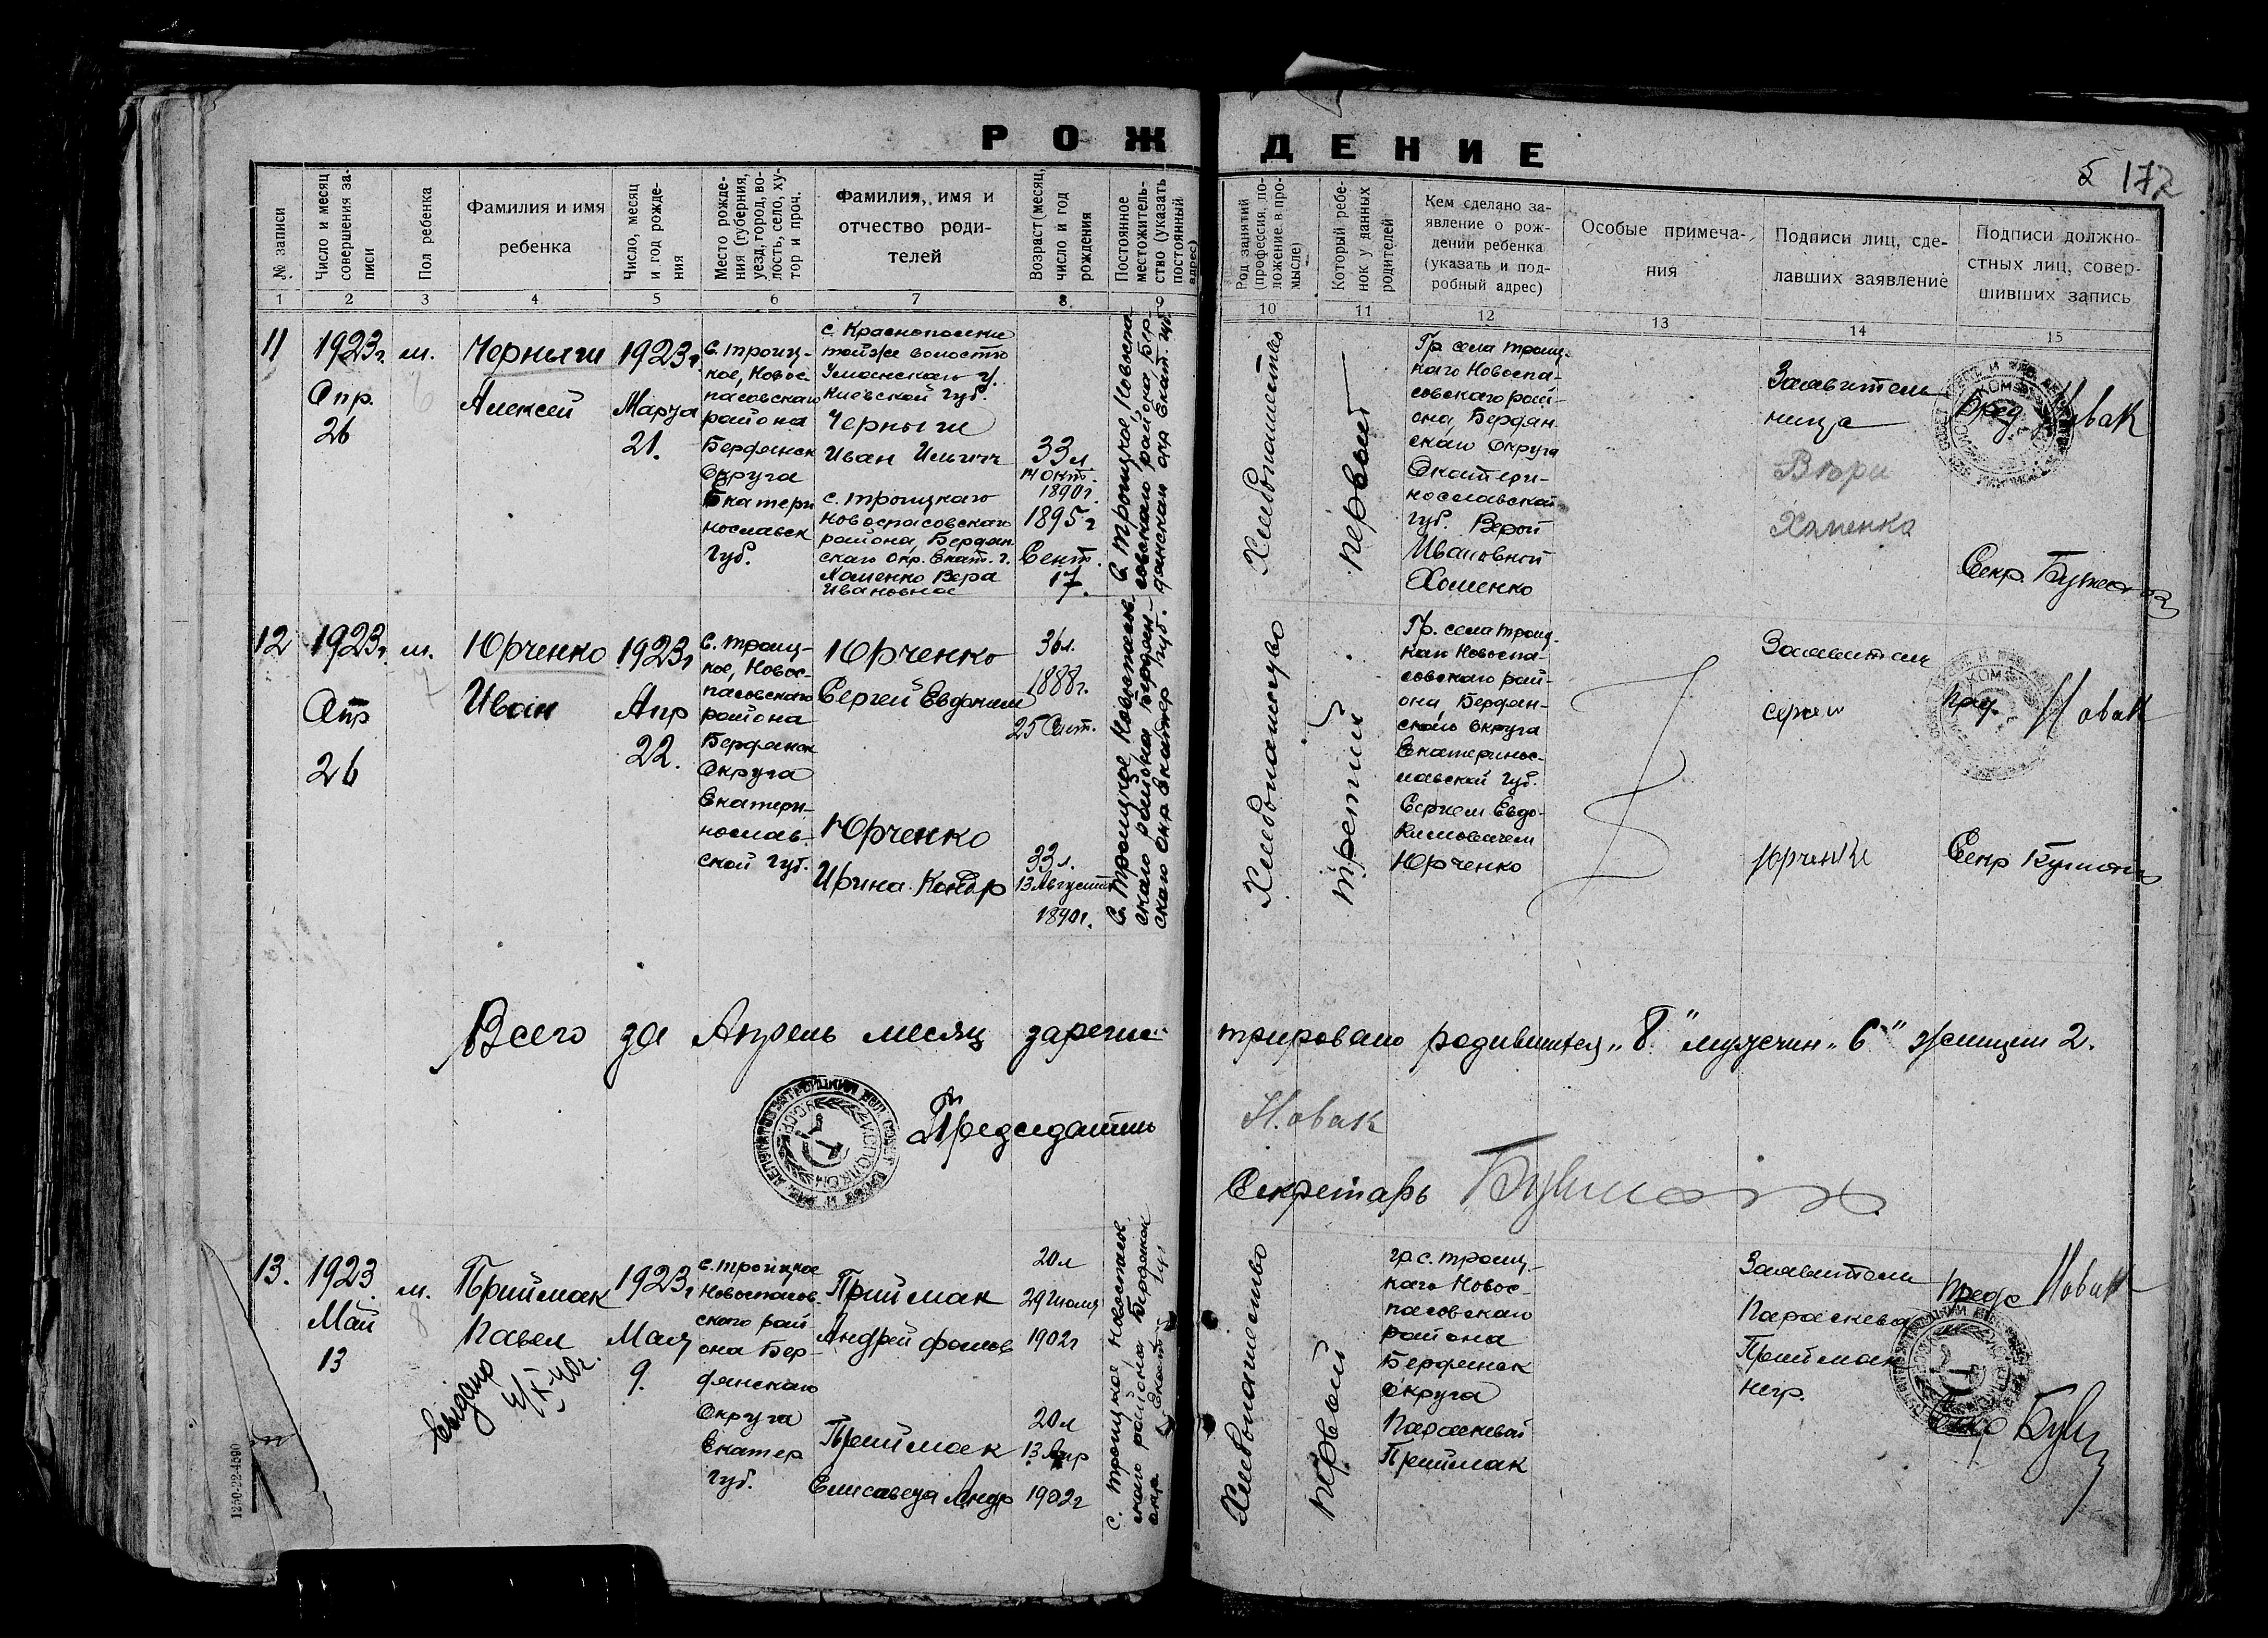 РОЖДЕНИЕ
172
№ записи
Число и месяц совершения за-
писи
Пол ребенка
Фамилия и имя
ребенка
Число, месяц
и год рожде-
ния
Место рожде-
ния (губерния,
уезд, город, во-
лость, село, ху-
тор и проч.
Фамилия, имя и
отчество роди-
телей
Возраст (месяц,
число и год
рождения
Постоянное
местожитель-
ство (указать
постоянный
адрес)
Род занятий
(профессия, по-
ложение в про-
мысле)
Который ребе-
нок у данных
родителей
Кем сделано за-
явление о рож-
дении ребенка
(указать и под-
робный адрес)
Особые примеча-
ния
Подписи лиц, сде-
лавших заявление
Подписи должно-
стных лиц, совер-
шивших запись
1 2 3 4 5 6 7 8 10 11 12 13 14 15
11
1923г.
Апр.
26
м.
Черныш
Алексей
1923г.
Марта
21.
с. Троиц-
кое, Новос-
пасовскаго
района
Бердянск
Округа
Екатери
нославск
Губ.
с. Краснополки
тойже волости
Уманскаго у.
Киевской Губ.
Черныш
Иван Ильич
с. Троицкаго
Новоспасовскаго
района, Бердян
скаго Окр. Екат. г.
Хоменко Вера
Ивановна
33 л
14 окт.
1890г.
1895г
Сент.
17.
Хлебопашество
первый
Гр. села Троиц-
каго Новоспа-
совскаго рай-
она, Бердян
скаго Округа
Екатери-
нославской
губ. Верой
Ивановной
Хоменко
Заявитель
ница
Вера
Хоменко
Пред. Новак
Секр.
12
1923г.
Апр
26
м.
Юрченко
Иван
1923г
Апр
22.
с. Троиц-
кое, Новос-
пасовскаго
района
Бердянск
Округа
Екатери-
нослав-
ской Губ.
Юрченко
Сергей Евдоким
Юрченко
Ирина Кондр
36л.
1888г.
25 Сент.
33 л.
13 Августа
1890г.
с. Троицкое, Новоспасов-
скаго района Бердян-
скаго Окр Екатер Губ.
Хлебопашество
третий
Гр. села Троиц-
каго Новоспа-
совскаго рай-
она, Бердян-
скаго Округа
Екатеринос-
лавской Губ.
Сергеем Евдо-
кимовичем
Юрченко
Заявитель
Сергей
Юрченко
Пред. Новак
Секр
Всего за Апрель месяц зарегис-
трировано родившихся „8" мужчин „6" женщин 2.
Председатель
Новак
Секретарь
13.
1923
Май
13
м.
Приймак
Павел
1923г
Мая
9.
с. Троицкое
Новоспасов-
ского рай
она Бер-
дянскаго
Округа
Екатер
Губ.
Приймак
Андрей Фомов
Приймак
Елисавета Андр
20л
29 Июля
1902г
20л
13 Апр
1902г
Хлебопашество
первый
гр. с. Троиц-
каго Новос-
пасовскаго
района
Бердянск
Округа
Параскевой
Приймак
Заявитель
Параскева
Приймак
негр.
Предс Новак
1250-22-4590